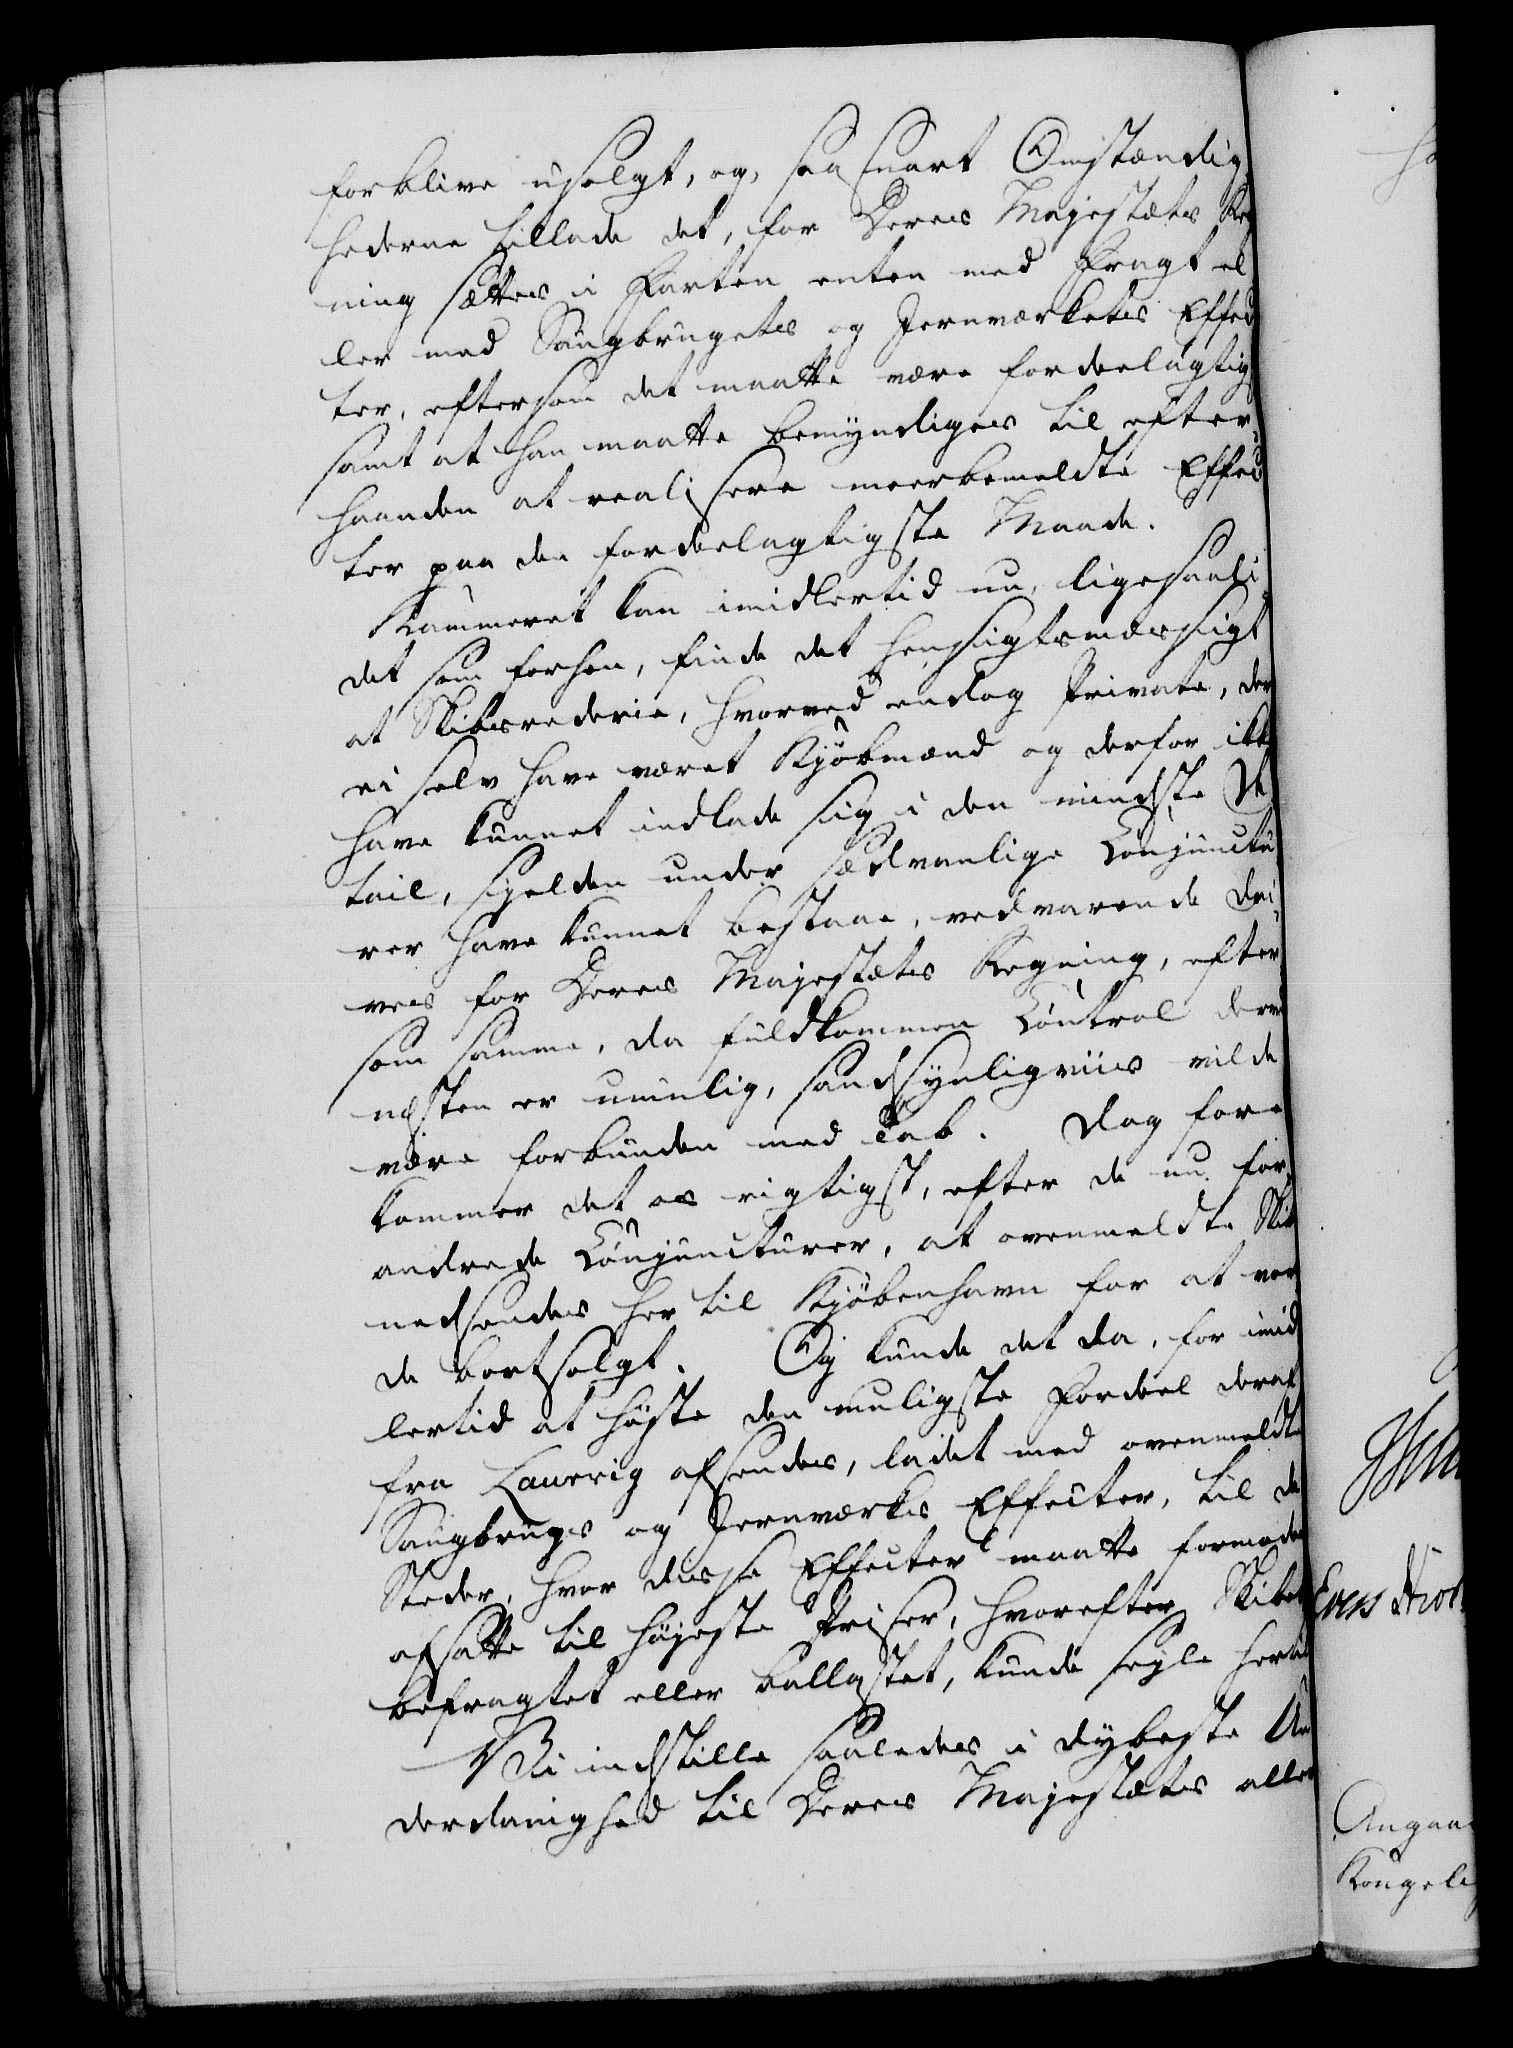 forblive usolgt, og, saasnart Omstændig-
hederne tillade det, for Deres Majestæts Reg
ning sættes i Farten enten med Fragt el
ler med Saugbrugets og Jernværkets Effec
ter, eftersom det maatte være fordeelagtigst
samt at han maatte bemyndiges til efter-
haanden at realisere meerbemeldte Effec
ter paa den fordeelagtigste Maade.
Kammeret kan imidlertid nu, ligesaali
det som forhen, finde det hensigtsmæssigt
at Skibsrederie, hvorved endog Private, der
ei selv have været Kjøbmænd og derfor ikke
have kunnet indlade sig i den mindste De
tail, sjelden under sædvanlige Conjunctu
rer have kunnet bestaae, vedvarende dri-
ves for Deres Majestæts Regning, efter
som samme, da fuldkommen Control derv
næsten er umulig, sandsynligviis vilde
være forbunden med Tab. Dog fore
kommer det os rigtigst, efter de nu for-
andrede Conjuncturer, at ovenmeldte Skib
nedsendes her til Kjøbenhavn for at vor
de bortsolgt. Og kunde det da, for imid
lertid at høste den muligste Fordeel deraf
fra Laurvig afsendes, ladet med ovenmeldte
Saugbrugs og Jernværks Effecter, til de
Steder, hvor disse Effecter maatte formodes
afsatte til højeste Priser, hvorefter Skibet
befragtet eller ballastet, kunde sejle hertil
Vi indstille saaledes i dybeste Un
derdanighed til Deres Majestæts aller
Evers
Angaa
Kongeli